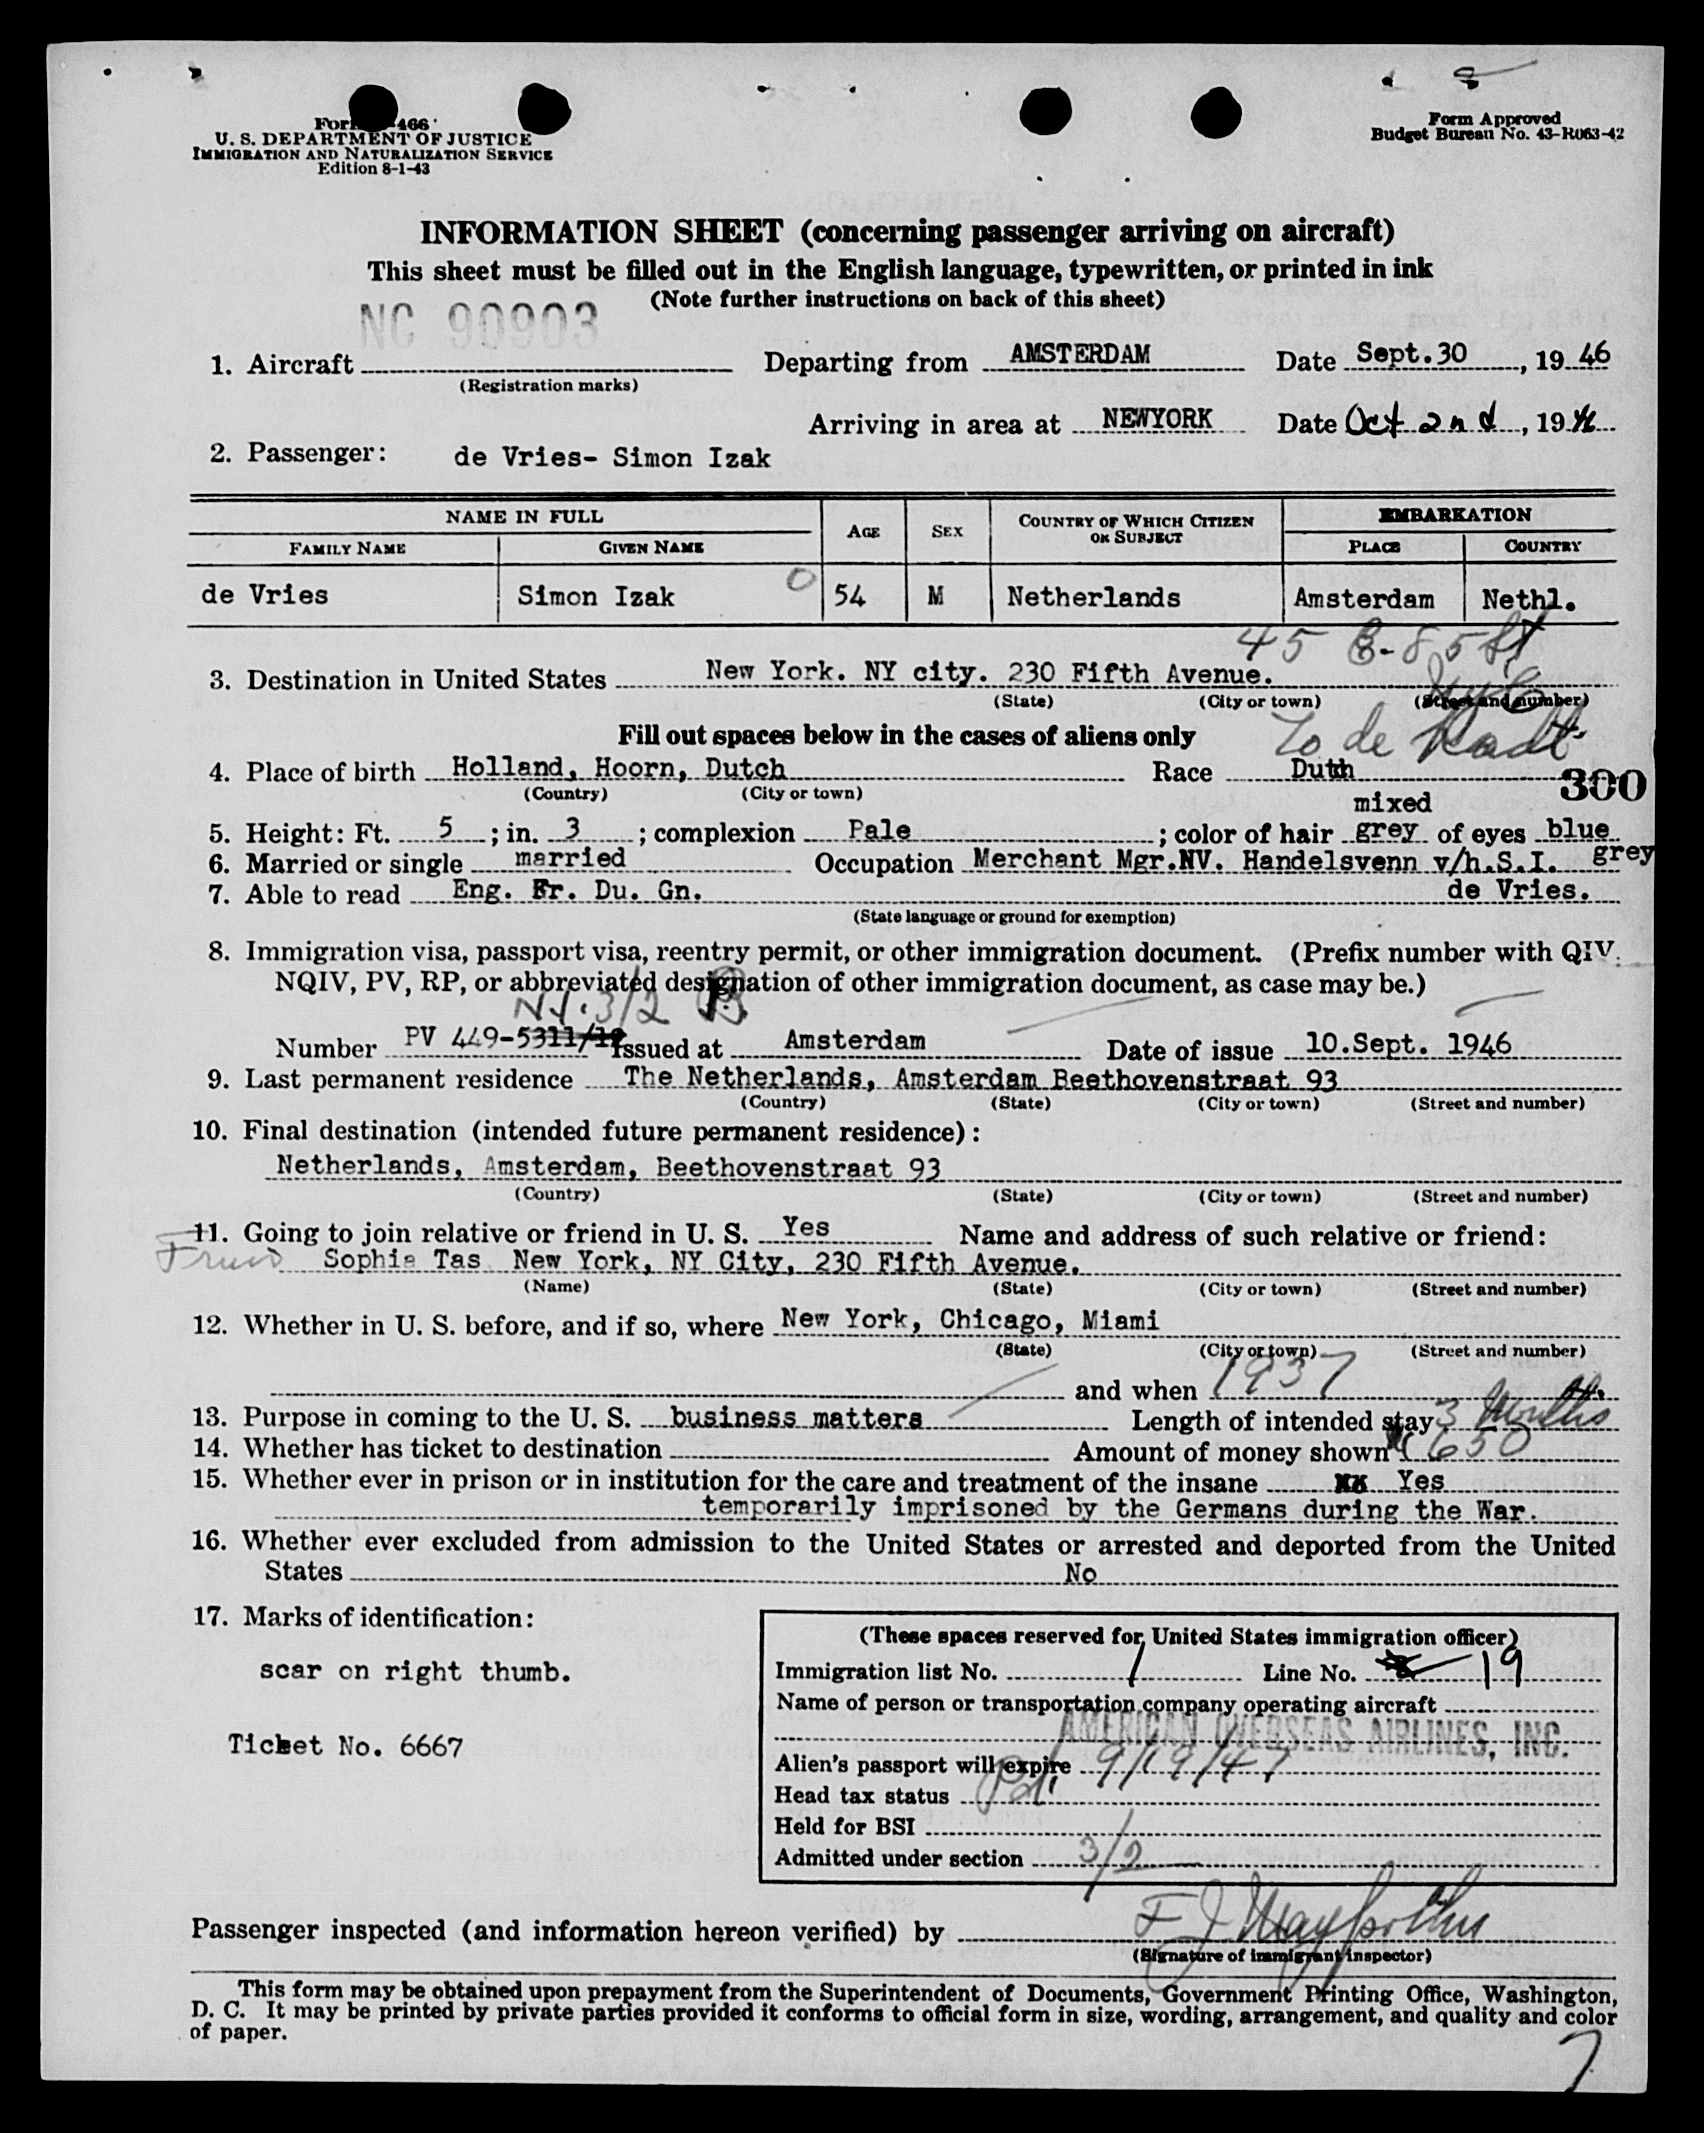 Form 466
U. S. DEPARTMENT OF JUSTICE
IMMIGRATION AND NATURALIZATION SERVICE
Edition 8-1-43
Form Approved
Budget Bureau No. 43-R063-42
INFORMATION SHEET (concerning passenger arriving on aircraft)
This sheet must be filled out in the English language, typewritten, or printed in ink
(Note further instructions on back of this sheet)
NC 90903
1. Aircraft Departing from AMSTERDAM Date Sept.30, 19 46
(Registration marks)
Arriving in area at NEWYORK Date Oct 2nd, 19 46
2. Passenger: de Vries- Simon Izak
NAME IN FULL AGE SEX COUNTRY OF WHICH CITIZEN OR SUBJECT EMBARKATION
FAMILY NAME GIVEN NAME PLACE COUNTRY
de Vries Simon Izak 0 54 M Netherlands Amsterdam Nethl.
45 E-85 St
3. Destination in United States New York. NY city. 230 Fifth Avenue.
(State) (City or town) (Street and number)
NYC
Fill out spaces below in the cases of aliens only
4. Place of birth Holland, Hoorn, Dutch Race Dutch
(Country) (City or town)
300
mixed
5. Height: Ft. 5; in. 3; complexion Pale; color of hair grey of eyes blue
grey
6. Married or single married Occupation Merchant Mgr.NV. Handelsvenn v/h.S.I.
de Vries.
7. Able to read Eng. Fr. Du. Gn.
(State language or ground for exemption)
8. Immigration visa, passport visa, reentry permit, or other immigration document. (Prefix number with QIV,
NQIV, PV, RP, or abbreviated designation of other immigration document, as case may be.)
3/2
Number PV 449-5311/19 Issued at Amsterdam Date of issue 10.Sept. 1946
9. Last permanent residence The Netherlands, Amsterdam Beethovenstraat 93
(Country) (State) (City or town) (Street and number)
10. Final destination (intended future permanent residence):
Netherlands, Amsterdam, Beethovenstraat 93
(Country) (State) (City or town) (Street and number)
11. Going to join relative or friend in U. S. Yes Name and address of such relative or friend:
Friend Sophie Tas New York, NY City, 230 Fifth Avenue.
(Name) (State) (City or town) (Street and number)
12. Whether in U. S. before, and if so, where New York, Chicago, Miami
(State) (City or town) (Street and number)
and when 1937
13. Purpose in coming to the U. S. business matters Length of intended stay 3 Months
14. Whether has ticket to destination Amount of money shown 650
15. Whether ever in prison or in institution for the care and treatment of the insane Yes
temporarily imprisoned by the Germans during the War.
16. Whether ever excluded from admission to the United States or arrested and deported from the United
States No
17. Marks of identification:
scar on right thumb.
Ticket No. 6667
(These spaces reserved for United States immigration officer)
Immigration list No. 1 Line No. 19
Name of person or transportation company operating aircraft
AMERICAN OVERSEAS AIRLINES, INC.
Alien's passport will expire 9/19/47
Head tax status Pd.
Held for BSI
Admitted under section 3/2
Passenger inspected (and information hereon verified) by F J
(Signature of immigrant inspector)
This form may be obtained upon prepayment from the Superintendent of Documents, Government Printing Office, Washington,
D. C. It may be printed by private parties provided it conforms to official form in size, wording, arrangement, and quality and color
of paper.
7